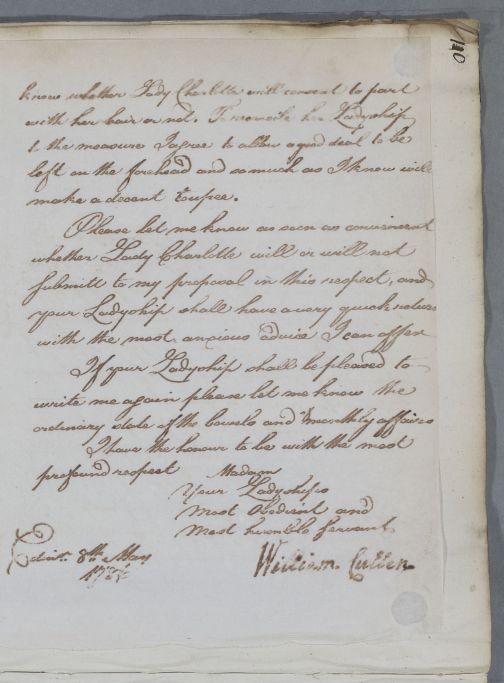 110
know whether Lady Charlotte will consent to part
with her hair or not. To reconcile her Ladyship
to the measure I agree to allow a good deal to be
left on the forehead and so much as I know will
make a decent Toupee.
Please let me know as soon as convenient
whether Lady Charlotte will or will not
submitt to my proposal in this respect, and
your Ladyship shall have a very quick return
with the most anxious advice I can offer
If your Ladyship shall be pleased to
write me again please let me know the
ordinary state of the bowels and monthly affairs
I have the honour to be with the most
profound respect
Madam
Your Ladyships
Most Obedient and
Most humble Servant
William Cullen
Edinr. 8th May